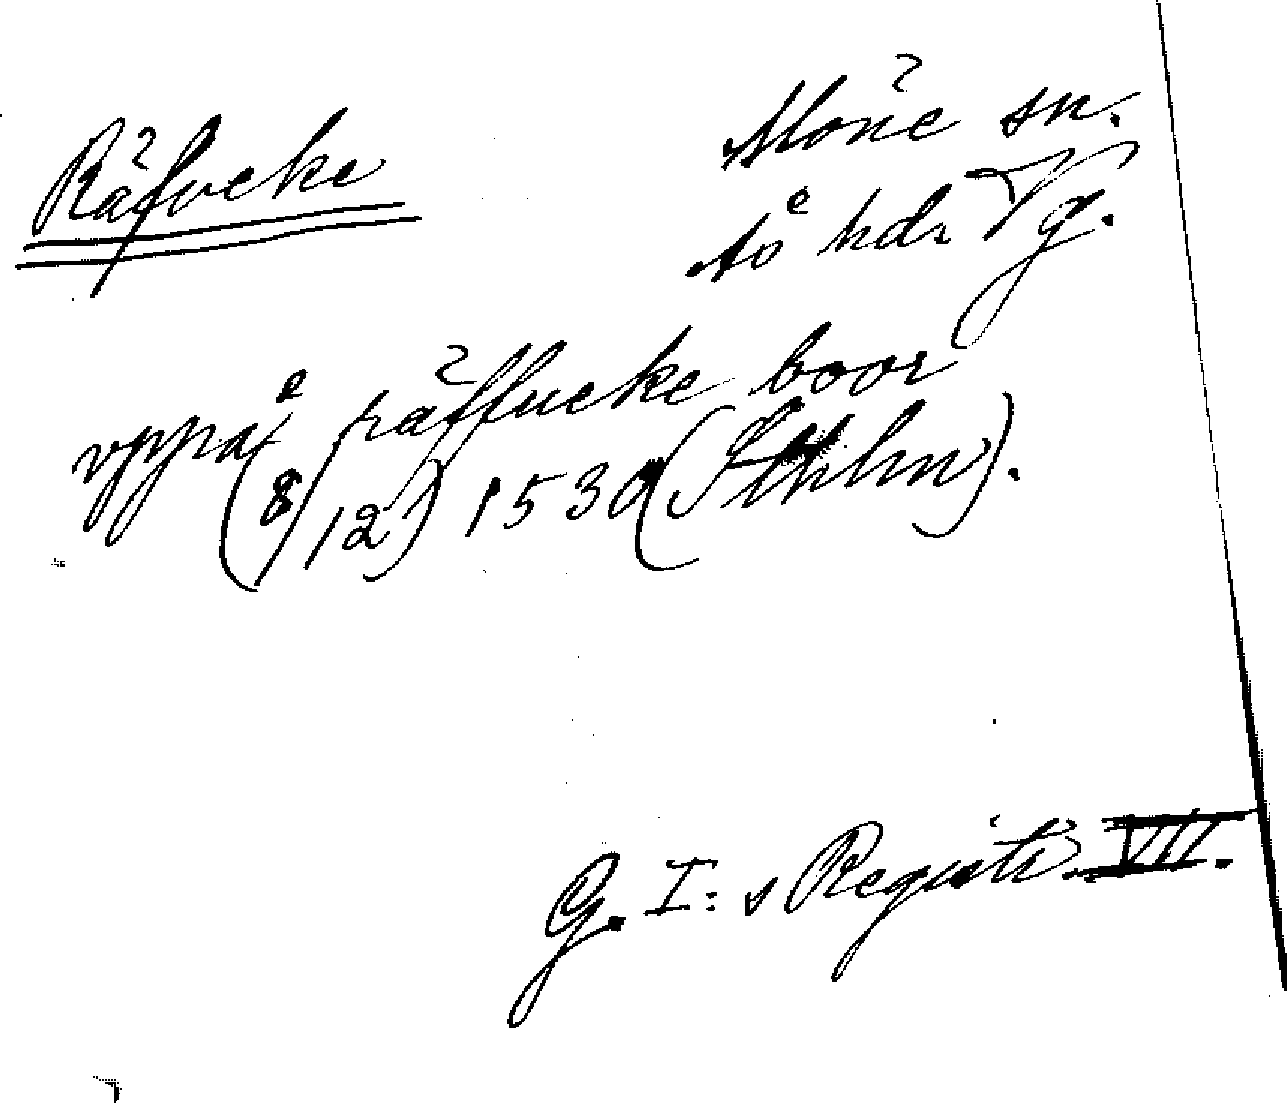 Räfvcke
Möne sn.
Ås hd. Vg.
vppå räffueke boor
(8/12) 1530 (Sthlm).
G. I:s Registr. VII.